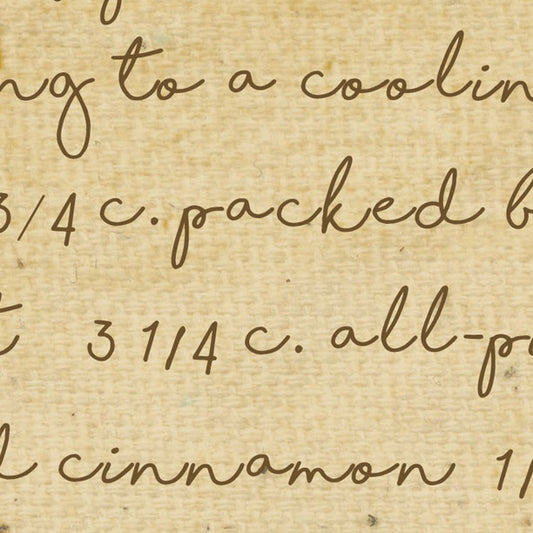 ng to a coolin
3/4 c. packed b
t 3 1/4 c. all-p
d cinnamon 1/